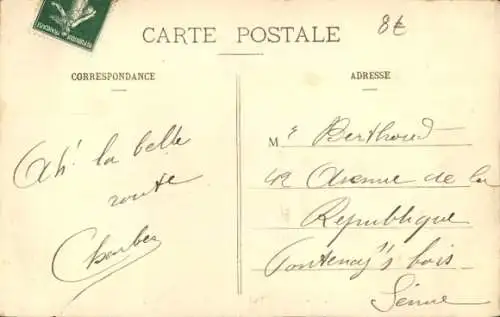 8€
CARTE POSTALE
CORRESPONDANCE
ADRESSE
Ah! la belle
route
Me Berthoud
42 Avenue de la
République
Fontenay s/s bois
Seine